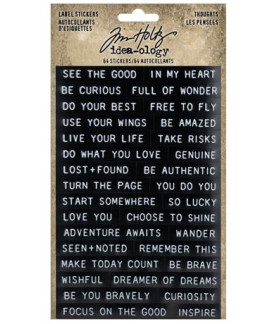 LABEL STICKERS
AUTOCOLLANTS D'ÉTIQUETTES
THOUGHTS
LES PENSÉES
Tim Holtz
idea-ology
64 STICKERS/64 AUTOCOLLANTS
SEE THE GOOD IN MY HEART
BE CURIOUS FULL OF WONDER
DO YOUR BEST FREE TO FLY
USE YOUR WINGS BE AMAZED
LIVE YOUR LIFE TAKE RISKS
DO WHAT YOU LOVE GENUINE
LOST+FOUND BE AUTHENTIC
TURN THE PAGE YOU DO YOU
START SOMEWHERE SO LUCKY
LOVE YOU CHOOSE TO SHINE
ADVENTURE AWAITS WANDER
SEEN+NOTED REMEMBER THIS
MAKE TODAY COUNT BE BRAVE
WISHFUL DREAMER OF DREAMS
BE YOU BRAVELY CURIOSITY
FOCUS ON THE GOOD INSPIRE